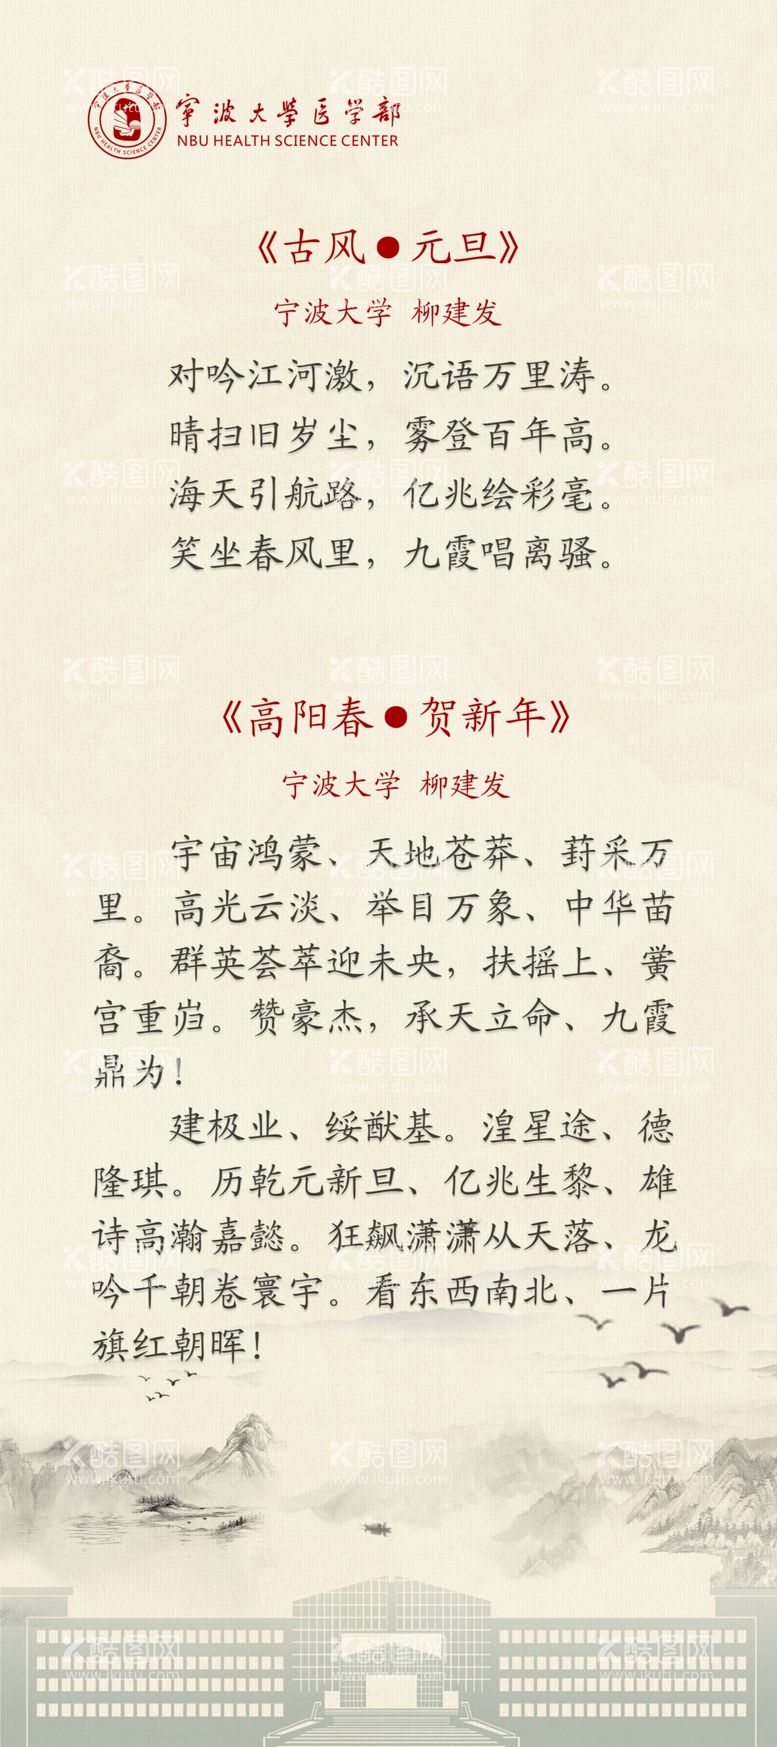 宁波大学医学部
NBU HEALTH SCIENCE CENTER
《古风●元旦》
宁波大学 柳建发
对吟江河激，沉语万里涛。
晴扫旧岁尘，雾登百年高。
海天引航路，亿兆绘彩毫。
笑坐春风里，九霞唱离骚。
《高阳春●贺新年》
宁波大学 柳建发
宇宙鸿蒙、天地苍莽、葑采万
里。高光云淡、举目万象、中华苗
裔。群英荟萃迎未央，扶摇上、黉
宫重岿。赞豪杰，承天立命、九霞
鼎为！
建极业、绥猷基。湟星途、德
隆琪。历乾元新旦、亿兆生黎、雄
诗高瀚嘉懿。狂飙潇潇从天落、龙
吟千朝卷寰宇。看东西南北、一片
旗红朝晖！
酷图网
www.ikutu.com